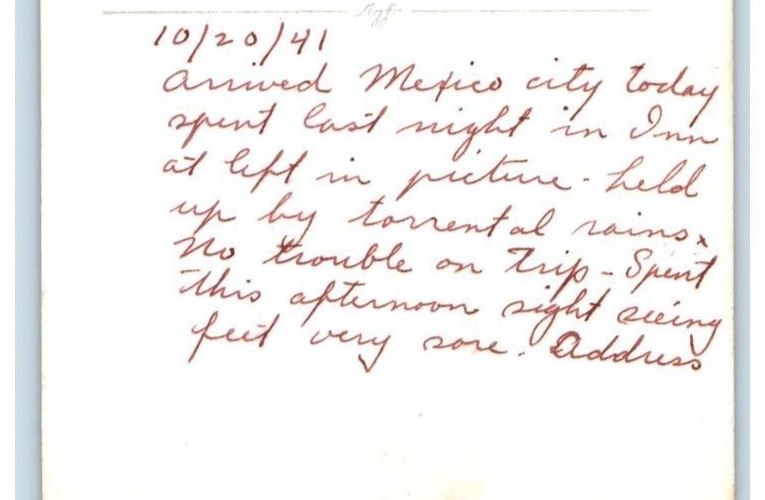 10/20/41
Arrived Mexico city today
spent last night in Inn
at left in picture - held
up by torrental rains.
No trouble on trip - Spent
this afternoon sight seeing
feet very sore. Address